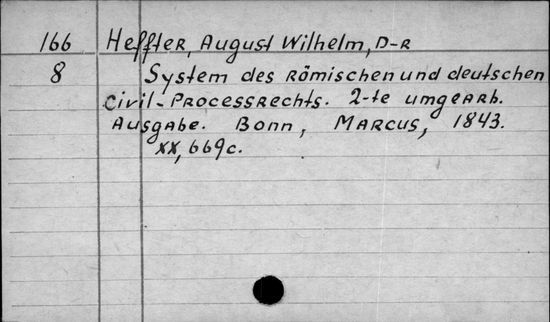 166 Heffter, August Wilhelm, D-r
8 System des römischen und deutschen
Civil-Processrechts. 2-te umgearb.
Ausgabe. Bonn, Marcus, 1843.
XX, 669c.